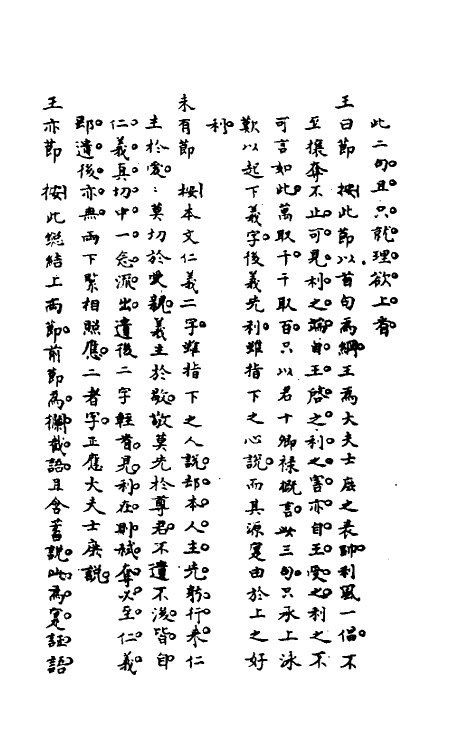 此二句且只就理欲上看
王曰節　按此節以首句為綱王為大夫士庶之表帥利風一倡不
至攘奪不止可見利之端自王啓之利之害亦自王受之利之不
可言如此萬取千千取百只以君十卿祿概言此三句只承上泳
歎以起下義字後義先利雖指下之心說而其源寔由於上之好
利
未有節　按本文仁義二字雖指下之人說却本人主先躬行來仁
主於愛：莫切於愛親義主於敬敬莫先於尊君不遺不後皆自
仁義真切中一念流出遺後二字輕看見利在則弒奪以至仁義
即遺後亦無兩下緊相照應二者字正應大夫士庶說
王亦節　按此總結上兩節前節為攔截語且含蓄說此為寔証語